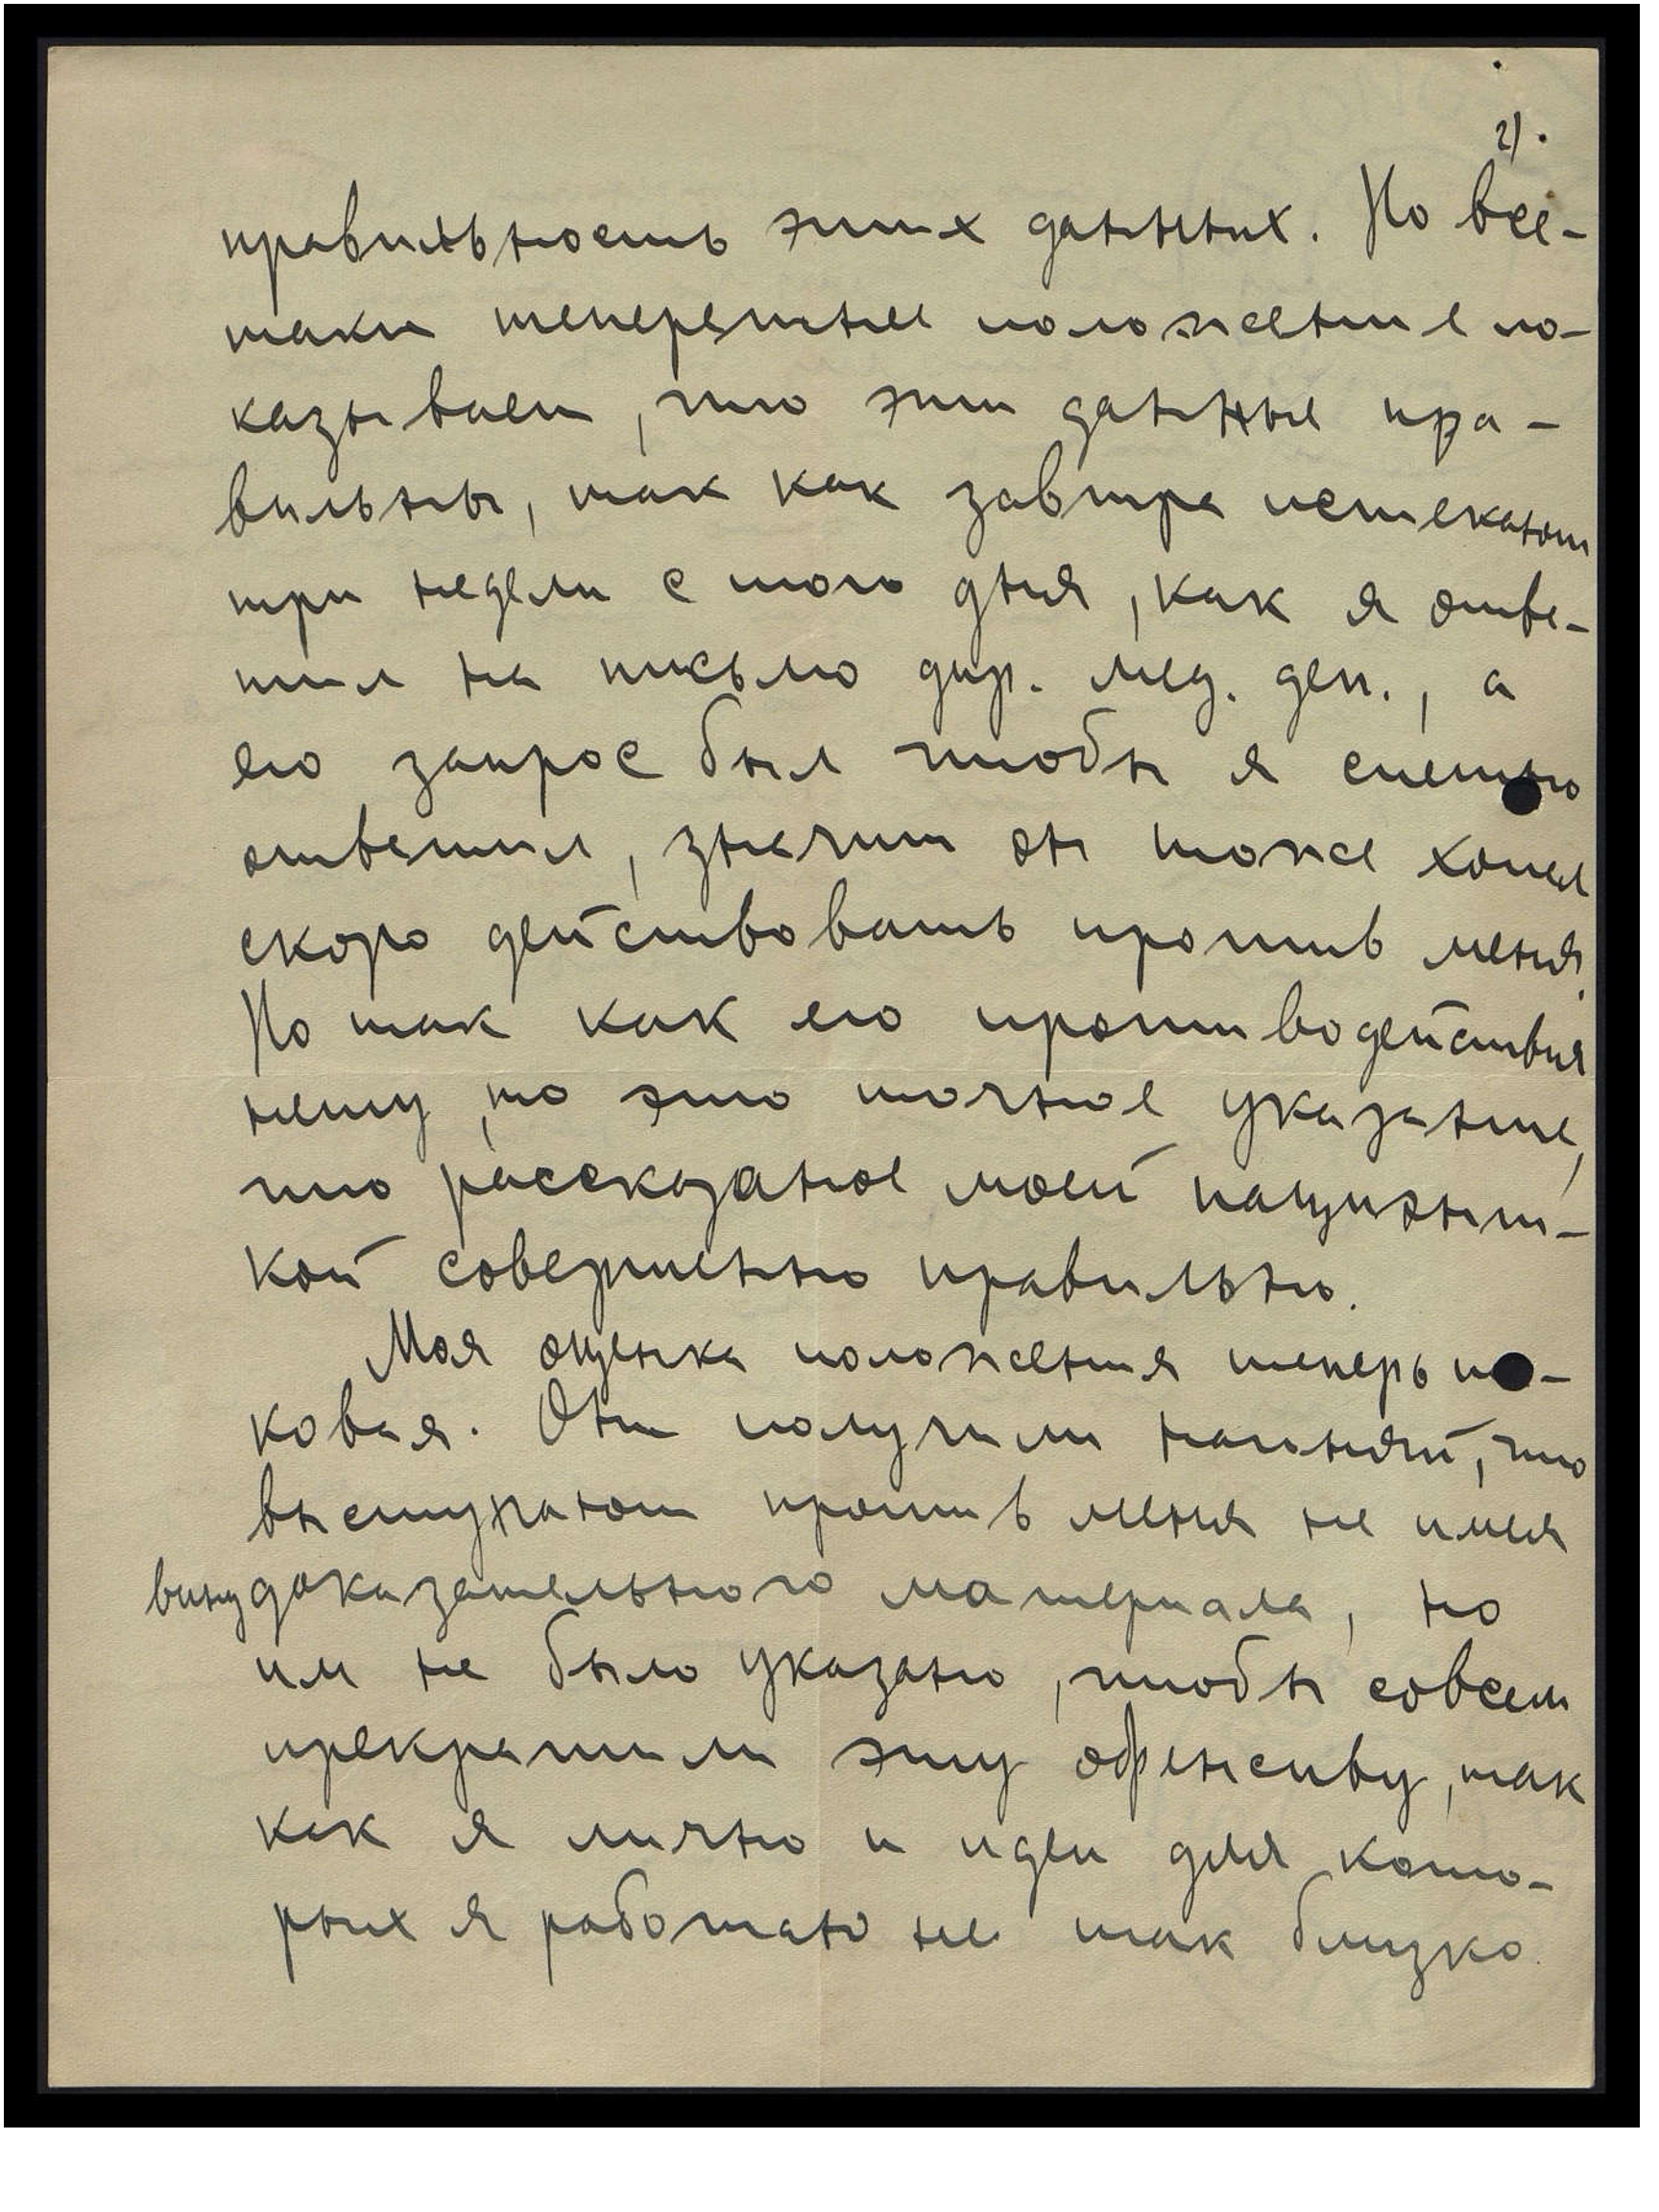 2).
правильность этих данных. Но все-
таки теперешнее положение по-
казывает, что эти данные пра-
вильны, так как завтра истекают
три недели с того дня, как я отве-
тил на письмо дир. мед. деп., а
его запрос был чтобы я спешно
ответил, значит он тоже хотел
скоро действовать против меня.
Но так как его противодействия
нету, то это точное указание,
что рассказаное моей пациэнт-
кой совершенно правильно.
Моя оценка положения теперь
ковая. Они получили нагоняй, что
выступают против меня не имея
вину доказательного материала, но
им не было указано, чтобы совсем
прекратили эту офенсиву, так
как я лично и идеи для кото-
рых я работаю не так близко